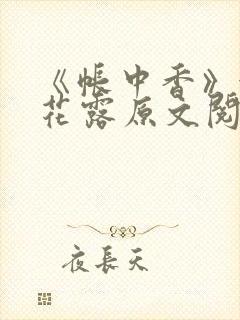 《帐中香》
花露原文阅
夜长天